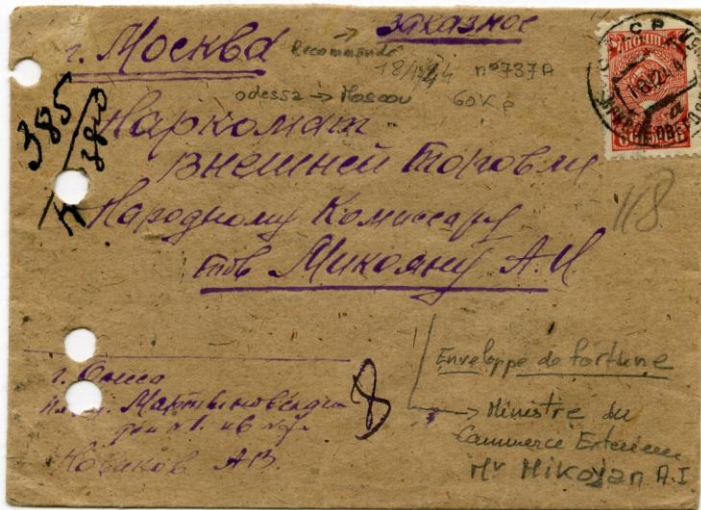 заказное
г. Москва
Recommandé
18/12/44 n°737A
odessa → Moscou 60K
385
Наркомат
внешней торговли
Народному Комиссару
тов Микояну А.И.
118
г. Одесса
Мартыновского
Новиков А.В.
8
Enveloppe de fortune
→ Ministre du
Commerce Exterieur
Mr Mikojan A.I